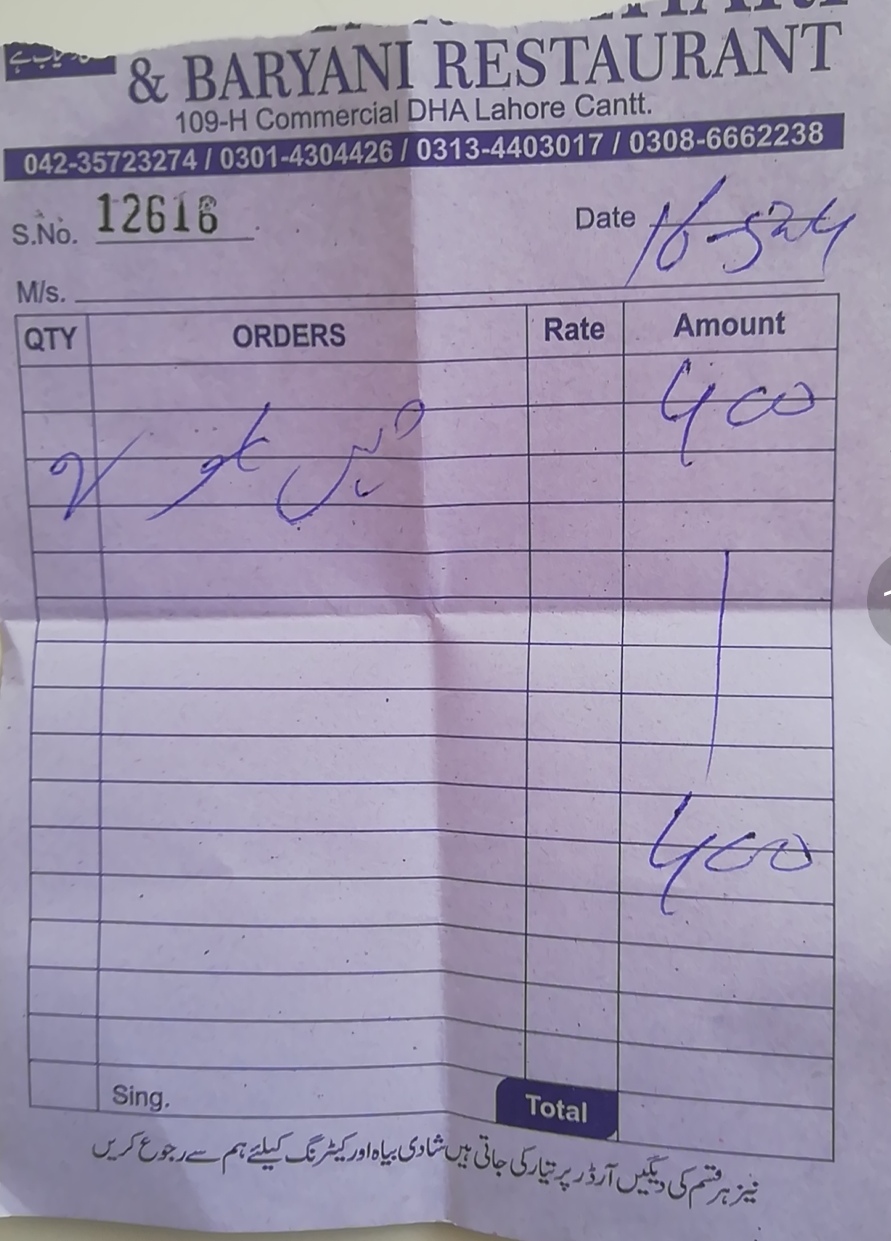 & BARYANI RESTAURANT
109-H Commercial DHA Lahore Cantt.
042-35723274 / 0301-4304426 / 0313-4403017 / 0308-6662238
S.No. 12616 Date 16-5-24
M/s.
QTY ORDERS Rate Amount
400
2
400
Sing. Total
نیز ہر قسم کی دیگیں آرڈر پر تیار کی جاتی ہیں شادی بیاہ اور کیٹرنگ کیلئے ہم سے رجوع کریں